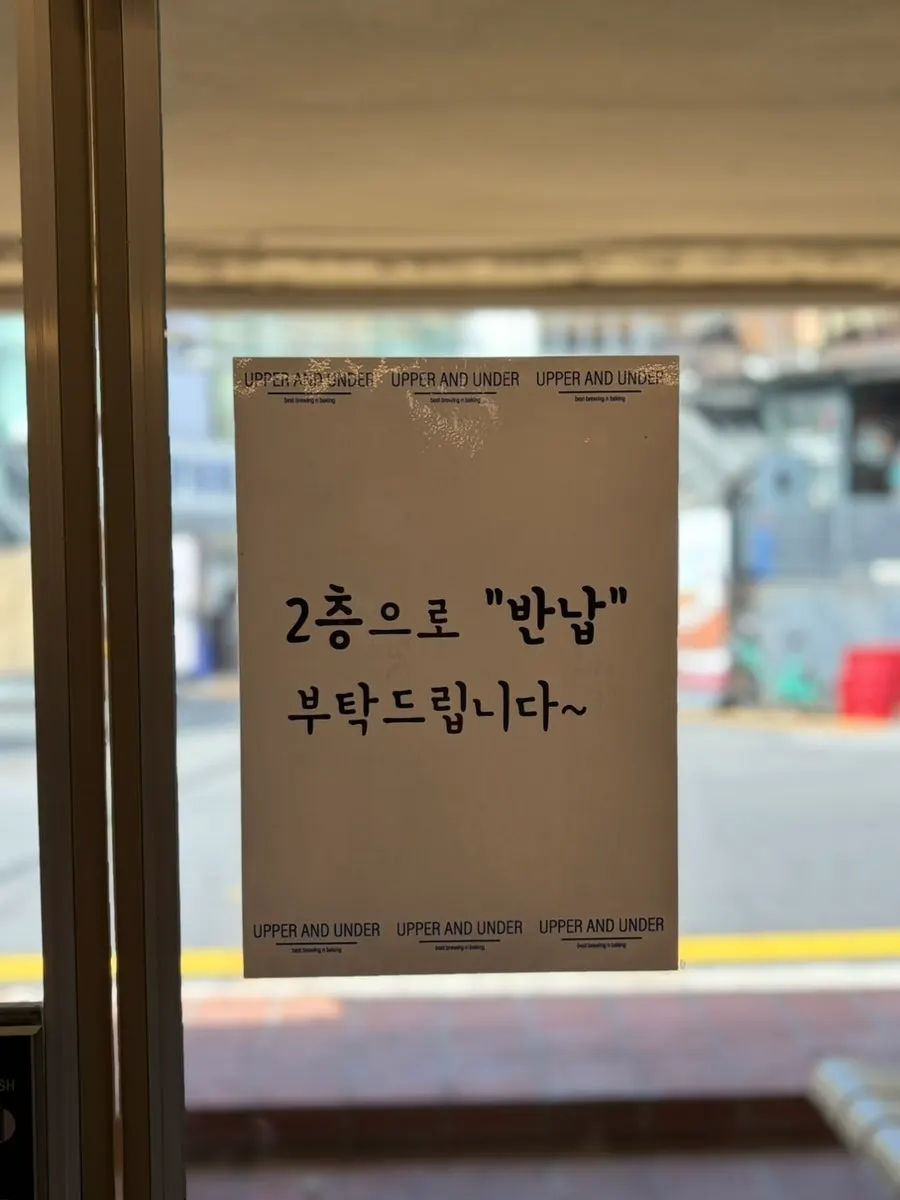 UPPER AND UNDER UPPER AND UNDER UPPER AND UNDER
best brewing n baking best brewing n baking best brewing n baking
2층으로 "반납"
부탁드립니다~
UPPER AND UNDER UPPER AND UNDER UPPER AND UNDER
best brewing n baking best brewing n baking best brewing n baking
SH